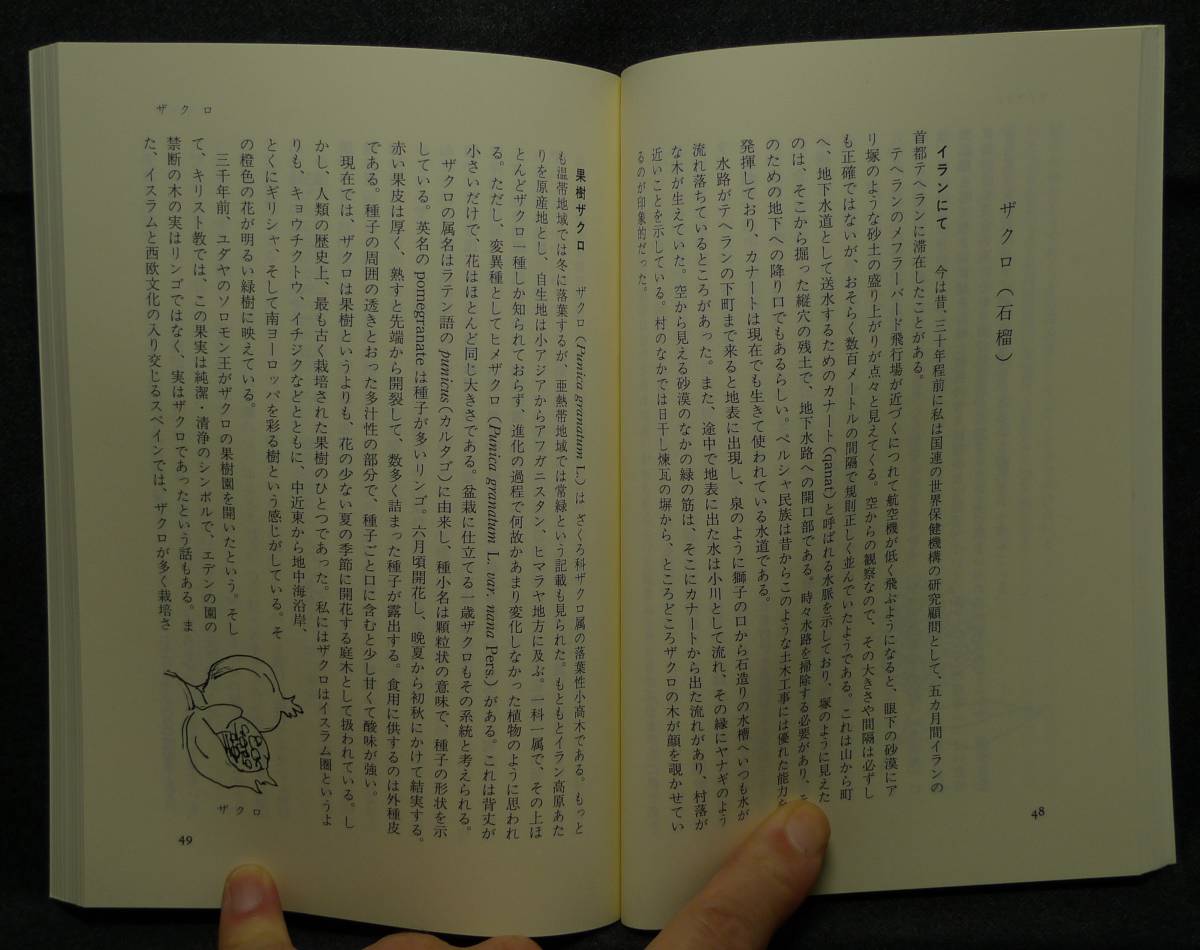 ザクロ(石榴)
イランにて　今は昔、三十年程前に私は国連の世界保健機構の研究顧問として、五カ月間イランの
首都テヘランに滞在したことがある。
テヘランのメフラーバード飛行場が近づくにつれて航空機が低く飛ぶようになると、眼下の砂漠にア
リ塚のような砂土の盛り上がりが点々と見えてくる。空からの観察なので、その大きさや間隔は必ずし
も正確ではないが、おそらく数百メートルの間隔で規則正しく並んでいたようである。これは山から町
へ、地下水道として送水するためのカナート(qanat)と呼ばれる水脈を示しており、塚のように見えた
のは、そこから掘った縦穴の残土で、地下水路への開口部である。時々水路を掃除する必要があり、そ
のための地下への降り口でもあるらしい。ペルシャ民族は昔からこのような土木工事には優れた能力を
発揮しており、カナートは現在でも生きて使われている水道である。
水路がテヘランの下町まで来ると地表に出現し、泉のように獅子の口から石造りの水槽へいつも水が
流れ落ちているところがあった。また、途中で地表に出た水は小川として流れ、その縁にヤナギのよう
な木が生えていた。空から見える砂漠のなかの緑の筋は、そこにカナートから出た流れがあり、村落が
近いことを示している。村のなかでは日干し煉瓦の塀から、ところどころザクロの木が顔を覗かせてい
るのが印象的だった。
48
ザクロ
果樹ザクロ　ザクロ(Punica granatum L.)は ざくろ科ザクロ属の落葉性小高木である。もっと
も温帯地域では冬に落葉するが、亜熱帯地域では常緑という記載も見られた。もともとイラン高原あた
りを原産地とし、自生地は小アジアからアフガニスタン、ヒマラヤ地方に及ぶ。一科一属で、その上ほ
とんどザクロ一種しか知られておらず、進化の過程で何故かあまり変化しなかった植物のように思われ
る。ただし、変異種としてヒメザクロ(Punica granatum L. var. nana Pers.)がある。これは背丈が
小さいだけで、花はほとんど同じ大きさである。盆栽に仕立てる一歳ザクロもその系統と考えられる。
ザクロの属名はラテン語の punicus(カルタゴ)に由来し、種小名は顆粒状の意味で、種子の形状を示
している。英名の pomegranate は種子が多いリンゴ。六月頃開花し、晩夏から初秋にかけて結実する。
赤い果皮は厚く、熟すと先端から開裂して、数多く詰まった種子が露出する。食用に供するのは外種皮
である。種子の周囲の透きとおった多汁性の部分で、種子ごと口に含むと少し甘くて酸味が強い。
現在では、ザクロは果樹というよりも、花の少ない夏の季節に開花する庭木として扱われている。し
かし、人類の歴史上、最も古く栽培された果樹のひとつであった。私にはザクロはイスラム圏というよ
りも、キョウチクトウ、イチジクなどとともに、中近東から地中海沿岸、
とくにギリシャ、そして南ヨーロッパを彩る樹という感じがしている。そ
の橙色の花が明るい緑樹に映えている。
三千年前、ユダヤのソロモン王がザクロの果樹園を開いたという。そし
て、キリスト教では、この果実は純潔・清浄のシンボルで、エデンの園の
禁断の木の実はリンゴではなく、実はザクロであったという話もある。ま
た、イスラムと西欧文化の入り交じるスペインでは、ザクロが多く栽培さ
ザクロ
49